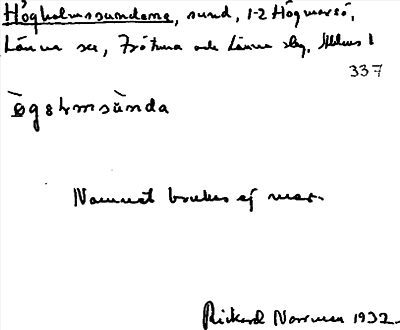 Högholmssundena, sund, 1-2 Högmarsö,
Länna sn, Frötuna och Länna skg, Sthlms l
337
ögshrmsùnda
Namnet brukas ej mer.
Rickard Norrman 1932.